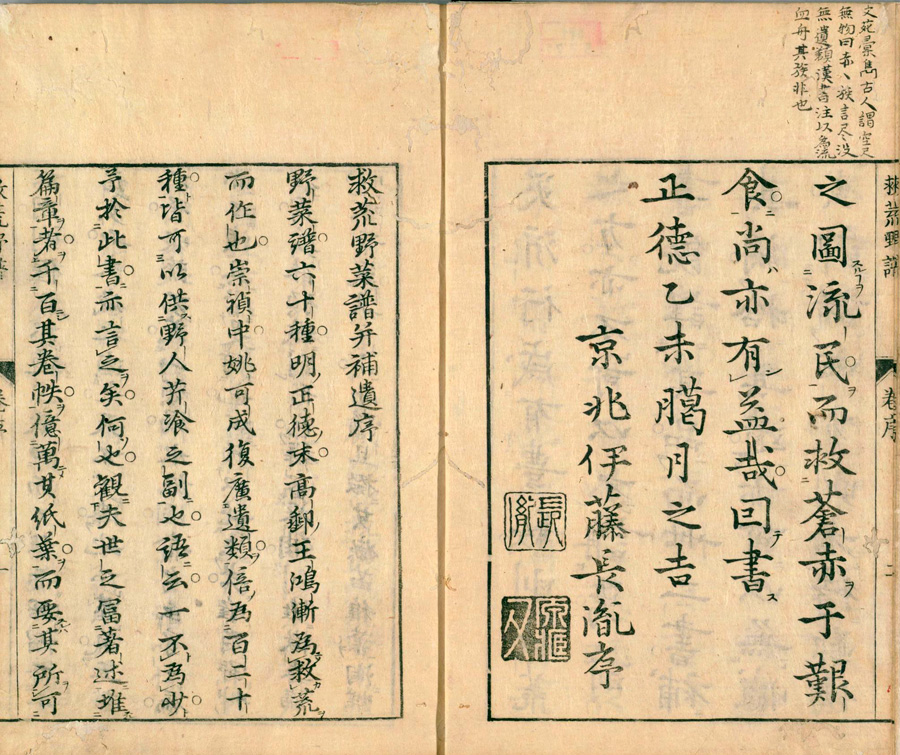 文苑彙雋古人謂空尽
無物曰赤、族言尽没
無遺類漢書注以為流
血丹其族非也
之圖流民而救蒼赤于艱
食尚亦有益哉因書
正德乙未臈月之吉
京兆伊藤長胤序
長胤
原藏
救荒野菜譜并補遺序
野菜譜六十種明正德末高郵王鴻漸為救荒
而作也崇禎中姚可成復廣遺類倍為百二十
種皆可以供野人芹飡之副也語云一不為少
予於此書亦言之矣何也觀夫世之富著述堆
篇章者千百其卷帙億萬其紙葉而要其所可
卷序